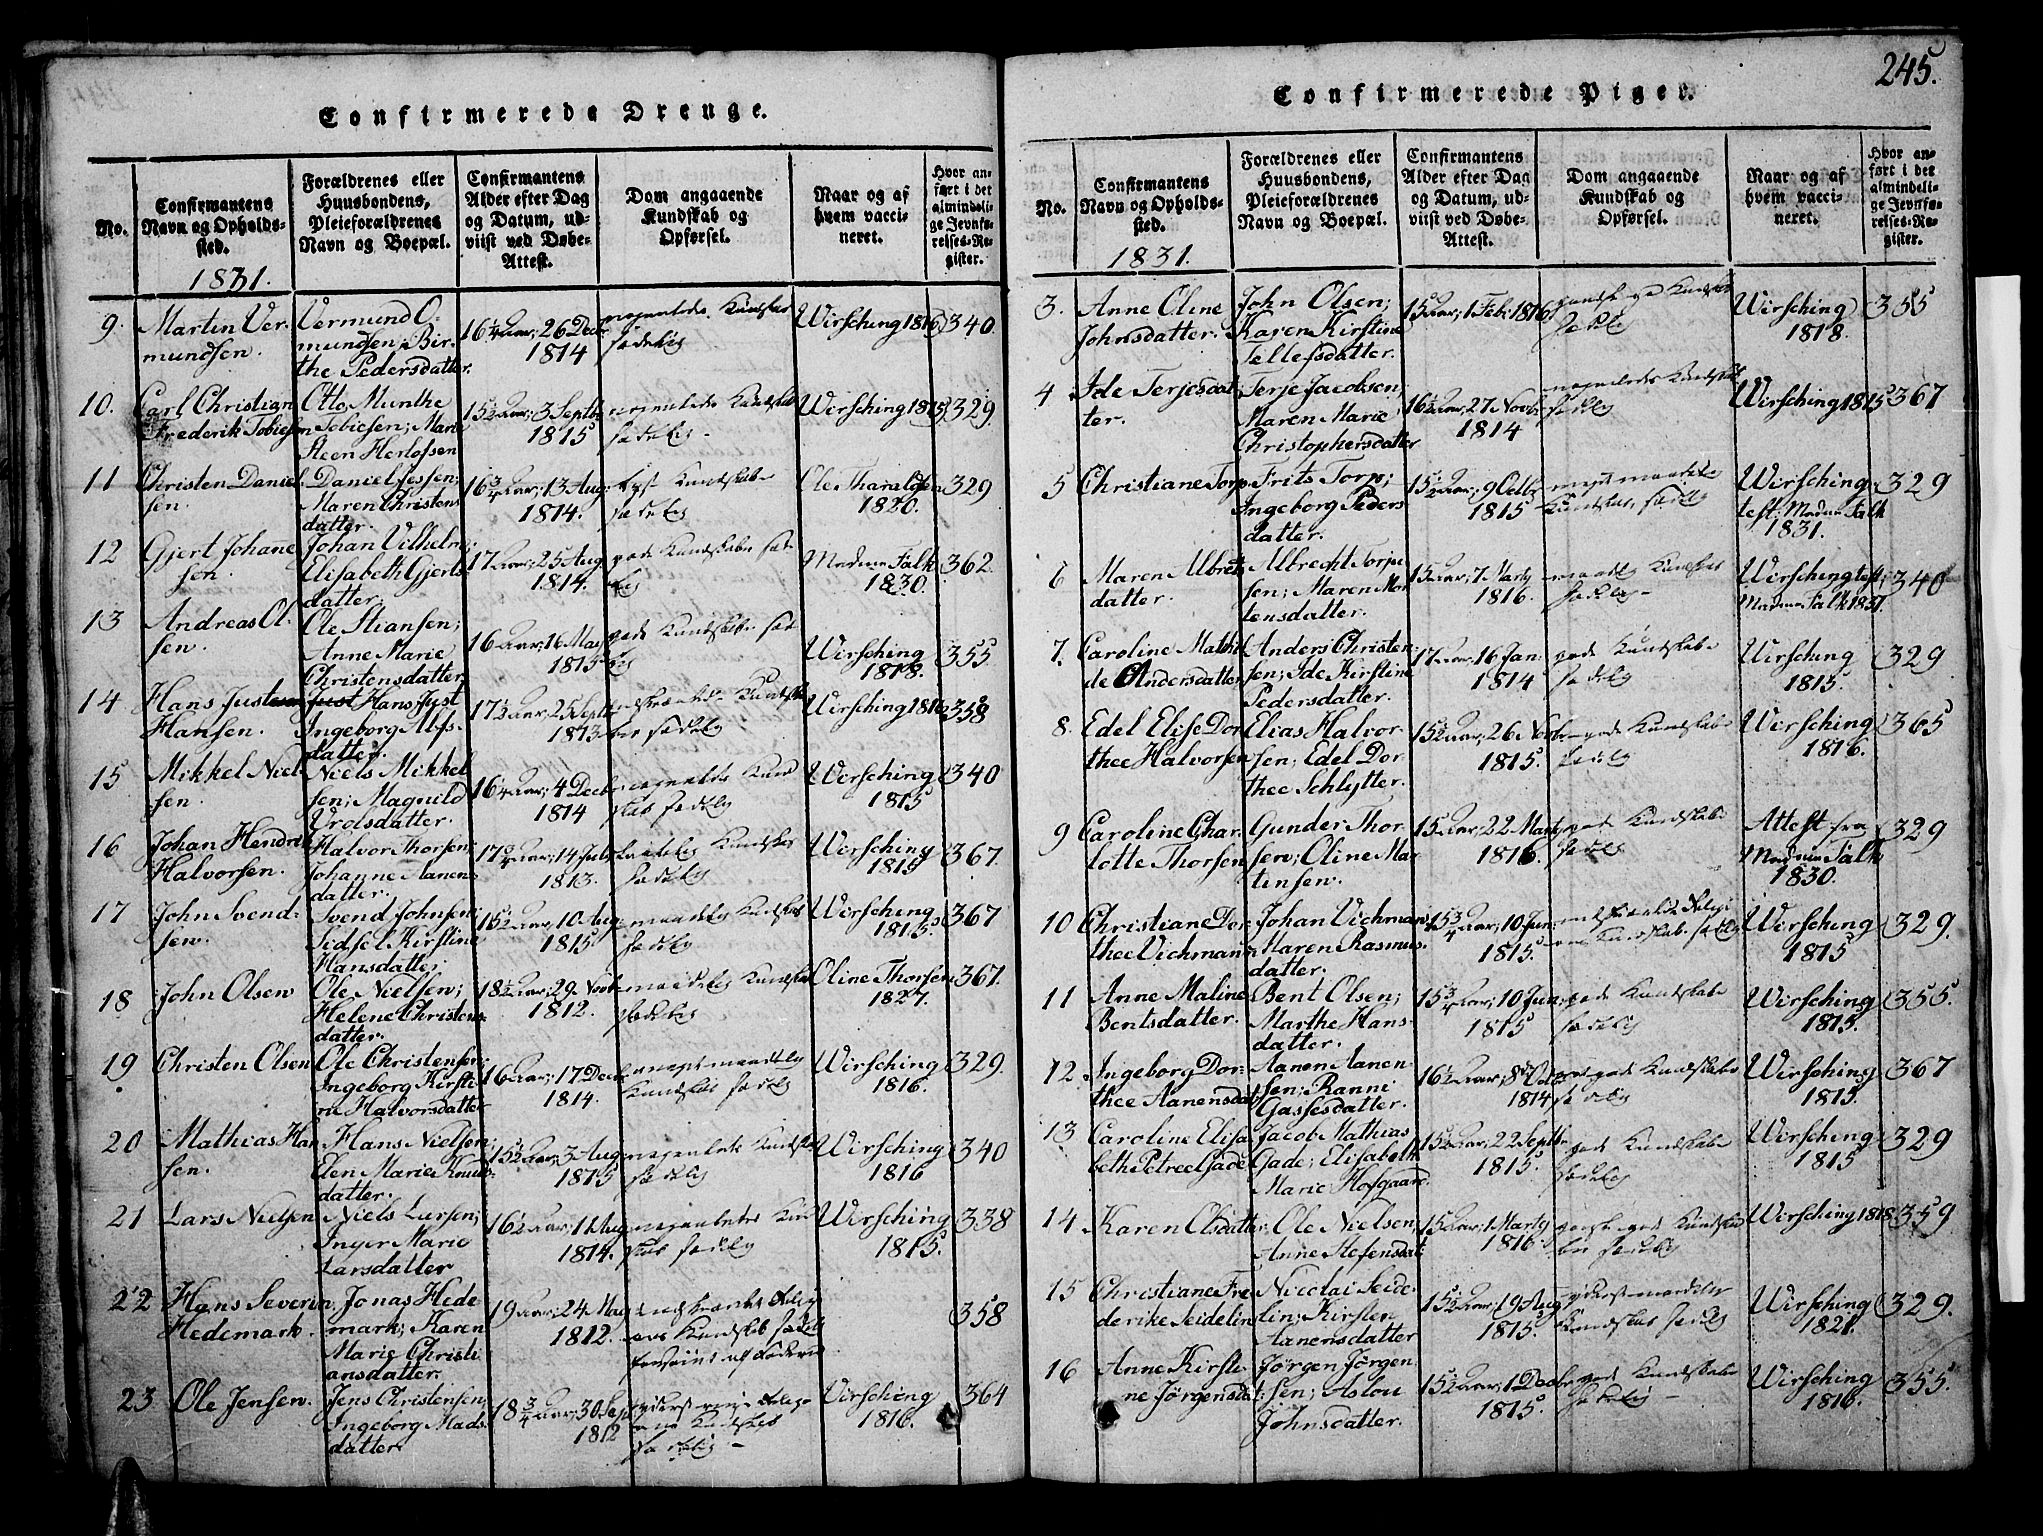 245.
Confirmerede Drenge.
No.
Confirmantens
Navn og Opholds-
sted.
1831.
Forældrenes eller
Huusbondens,
Pleieforældrenes
Navn og Boepæl.
Confirmantens
Alder efter Dag
og Datum, ud-
viist ved Døbe-
Attest.
Dom angaaende
Kundskab og
Opførsel.
Naar og af
hvem vacci-
neret.
Hvor an-
ført i det
almindeli-
ge Jevnfø-
relses-Re-
gister.
9. Martin Ver-
mundsen.
Vermund O-
mundsen; Bir-
the Pedersdatter.
16¼ Aar; 26 Decbr
1814
Kundskab
sædelig
Wirsching 1816
340
10. Carl Christian
Frederik Tobiesen
Otto Munthe
Tobiesen; Marie
Steen Herlofsen
15½ Aar; 3 Septb
1815
Kundskab
sædelig.
Wirsching 1815
329.
11 Christen Daniel-
sen.
Daniel Jessen;
Maren Christens
datter.
16¾ Aar; 13 Aug
1814.
Kundskab
sædelig
Ole Tharaldsen
1820.
329
12 Gjert Johane
sen.
Johan Vilhelm;
Elisabeth Gjerts
datter.
17 Aar; 25 Aug
1814.
gode Kundskaber sæd
elig
Madme Falk
1830.
362.
13 Andreas Ol-
sen.
Ole Stiansen;
Anne Marie
Christensdatter
16 Aar; 16 Mai
1815
gode Kundskaber sæd
elig
Wirsching
1818.
355
14 Hans Just
Hansen.
Hans Just
Ingeborg Alfs-
datter.
17½ Aar; 25 Septb
1813
Kundska
ber sædelig
Wirsching 1816
358
15 Mikkel Niel-
sen.
Niels Mikkel
sen; Magnild
Vrolsdatter.
16¼ Aar; 4 Decbr
1814
Kund
skab sædelig
Wirsching
1815
340
16 Johan Hendrik
Halvorsen.
Halvor Thorsen;
Johanne Aanen-
datter.
17¾ Aar; 14 July
1813.
Kundskab
sædelig
Wirsching
1815
367.
17 John Svend-
sen.
Svend Johnsen;
Sidsel Kirstine
Hansdatter;
15½ Aar; 10 Aug
1815
maadelig Kundskab
sædelig
Wirsching
1815.
367
18 John Olsen
Ole Nielsen;
Helene Christens
datter.
18½ Aar; 29 Novb
1812.
maadelig Kundskab
sædelig
Oline Thorsen
1827.
367.
19 Christen Olsen
Ole Christensen;
Ingeborg Kirsti
ne Halvorsdatter
16 Aar; 17 Decbr
1814.
Kundskab sædelig
Wirsching
1816.
329.
20 Mathias Han
sen.
Hans Nielsen;
Elen Marie Knuds
datter.
15½ Aar; 3 Aug
1815
Kundskab
sædelig
Wirsching
1816
340
21 Lars Nielsen
Niels Larsen;
Inger Marie
Larsdatter
16½ Aar; 11 Aug
1814.
Kund
skab sædelig
Wirsching
1815.
338
22 Hans Severin
Hedemark.
Jonas Hede
mark; Karen
Marie Christi
ansdatter.
19 Aar; 24 Mag
1812.
Kundskab sædel
358
23 Ole Jensen.
Jens Christensen
Ingeborg Mads-
datter.
18¾ Aar; 30 Sep
1812
Kundskab
sædelig
Wirsching
1816.
364
Confirmerede Piger.
No.
Confirmantens
Navn og Opholds-
sted.
1831.
Forældrenes eller
Huusbondens,
Pleieforældrenes
Navn og Boepæl.
Confirmantens
Alder efter Dag
og Datum, ud-
viist ved Døbe-
Attest.
Dom angaaende
Kundskab og
Opførsel.
Naar og af
hvem vacci-
neret.
Hvor an-
ført i det
almindeli-
ge Jevnfø-
relses-Re-
gister.
3. Anne Oline
Johnsdatter.
John Olsen;
Karen Kirstine
Tellefsdatter.
15 Aar; 1 Feb: 1816
ganske god Kundskab
sædelig
Wirsching
1818.
355
4 Ide Terjesdat
ter.
Terje Jacobsen;
Maren Marie
Christophersdatter
16½ Aar; 27 Novb
1814
Kundskab
sædelig
Wirsching 1815
367
5 Christiane Torp
Frits Torp;
Ingeborg Peders
datter.
15½ Aar; 9 Octb
1815
Kundskab, sædelig
Wirsching
test: Madme Falk
1831.
329
6 Maren Albrets
datter.
Albrecht Torju
sen; Maren Mor
tensdatter.
15 Aar; 7 Marty
1816.
maadelig Kundskab
sædelig
Wirsching test:
Madme Falk 1831.
340
7. Caroline Mathil
de Andersdatter
Anders Christen
sen; Ide Kirstine
Pedersdatter.
17 Aar; 16 Jan
1814
gode Kundskaber
sædelig
Wirsching
1815.
329
8. Edel Elise Dor
thee Halvorsen
Elias Halvor
sen; Edel Dor
thee Schlytter.
15½ Aar; 26 Nov
1815.
gode Kundskaber
sædelig
Wirsching
1816.
365
9 Caroline Char
lotte Thorsen
Gunder Thor
sen; Oline Mar
tensen.
15 Aar; 22 Marty
1816.
gode Kundskaber
sædelig
Attest fra
Madme Falk
1830.
329
10 Christiane Dor
thee Vichmann
Johan Vichman
Maren Rasmus
datter.
15¾ Aar; 10 Jun;
1815.
Kundskab sædelig
Wirsching
1815
329.
11 Anne Maline
Bentsdatter.
Bent Olsen;
Marthe Hans-
datter.
15¾ Aar; 10 Jun;
1815
gode Kundskaber
sædelig
Wirsching
1815.
355.
12 Ingeborg Dor-
thee Aanensdat
Aanen Aanen
sen; Ranni
Gassesdatter.
16½ Aar; 8 Octb
1814
gode Kundskaber
sædelig
Wirsching
1815.
367
13 Caroline Elisa
bethe Petree Gade
Jacob Mathias
Gade; Elisabeth
Marie Hofgaard.
15½ Aar; 22 Septbr
1815.
gode Kundskaber
sædelig
Wirsching
1815
329
14 Karen Olsdatter
Ole Nielsen
Anne Stefensdat
15 Aar; 1 Marty
1816.
ganske gode Kundska
ber sædelig
Wirsching 1818
359
15 Christiane Fre
derike Seidelin
Nicolai Seide-
lin; Kirsten
Aanensdatter
15½ Aar; 19 Aug
1815.
Kundskab sædelig
Wirsching
1821.
329.
16 Anne Kirsti-
ne Jørgensdat
Jørgen Jørgen
sen; Aslou
Johnsdatter.
15½ Aar; 1 Decbr
1815.
gode Kundskaber
sædelig
Wirsching
1816.
355.